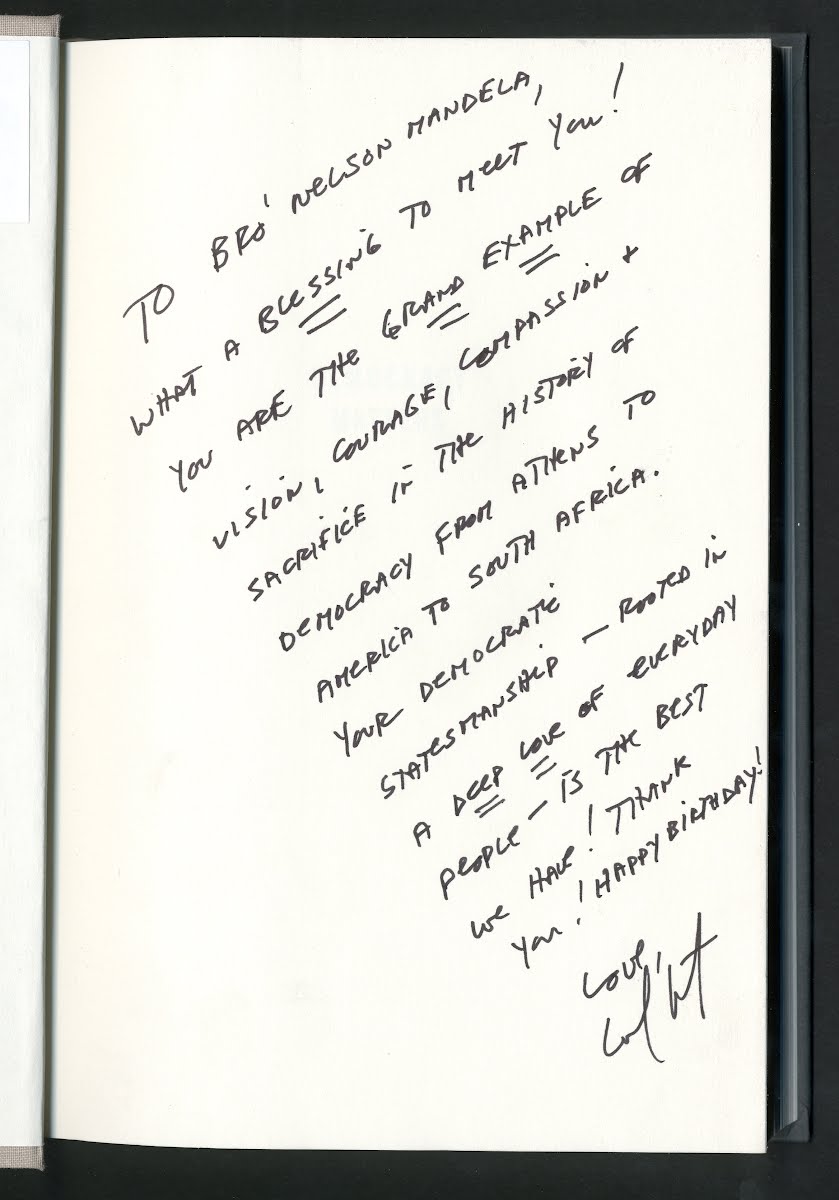 TO BRO' NELSON MANDELA,
WHAT A BLESSING TO MEET YOU!
YOU ARE THE GRAND EXAMPLE OF
VISION, COURAGE, COMPASSION +
SACRIFICE IN THE HISTORY OF
DEMOCRACY FROM ATHENS TO
AMERICA TO SOUTH AFRICA.
YOUR DEMOCRATIC
STATESMANSHIP — ROOTED IN
A DEEP LOVE OF EVERYDAY
PEOPLE — IS THE BEST
WE HAVE! THANK
YOU! HAPPY BIRTHDAY!
LOVE,